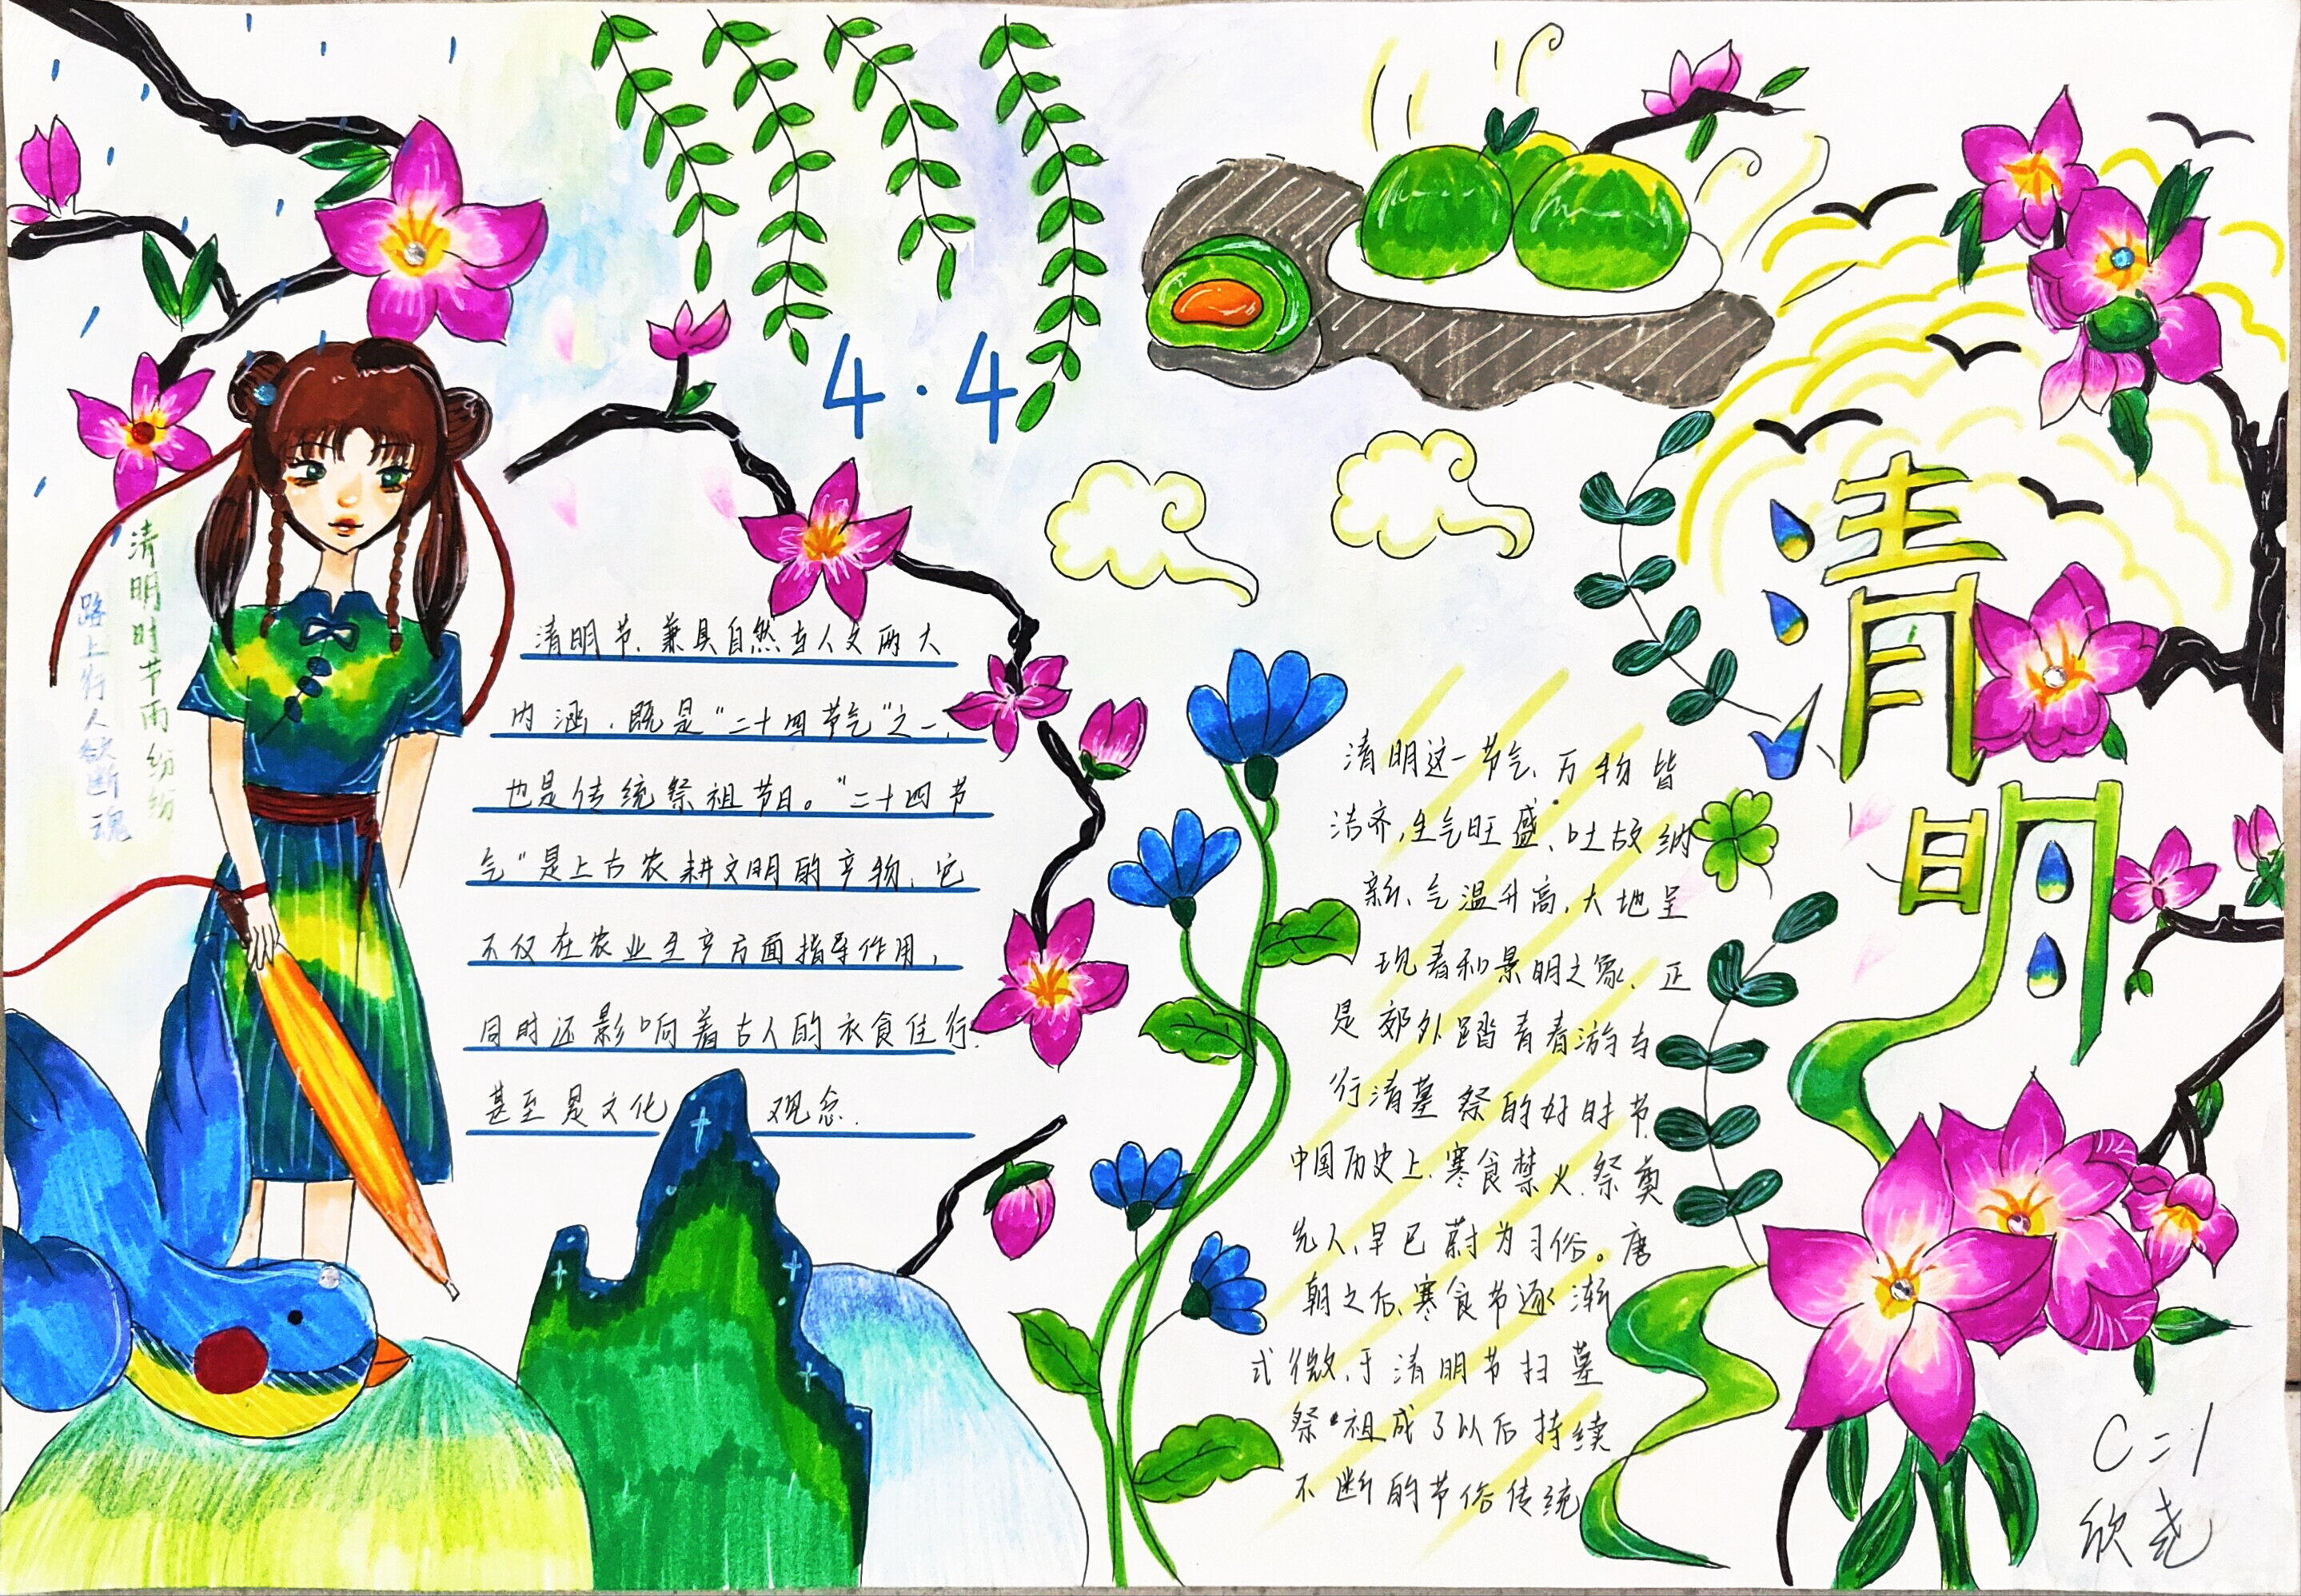 4·4
清明
清明时节雨纷纷
路上行人欲断魂
清明节、兼具自然与人文两大
内涵，既是“二十四节气”之一，
也是传统祭祖节日。“二十四节
气”是上古农耕文明的产物，它
不仅在农业生产方面指导作用，
同时还影响着古人的衣食住行，
甚至是文化观念．
清明这一节气、万物皆
洁齐，生气旺盛、吐故纳
新、气温升高，大地呈
现春和景明之象、正
是郊外踏青春游与
行清墓祭的好时节．
中国历史上，寒食禁火，祭奠
先人、早已蔚为习俗。唐
朝之后、寒食节逐渐
式微，于清明节扫墓
祭祖成了以后持续
不断的节俗传统
C=1
欣尧